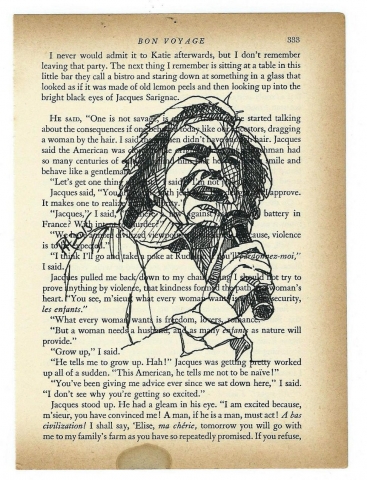 BON VOYAGE 333
I never would admit it to Katie afterwards, but I don't remember
leaving that party. The next thing I remember is sitting at a table in this
little bar they call a bistro and staring down at something in a glass that
looked as if it was made of old lemon peels and then looking up into the
bright black eyes of Jacques Sarignac.
HE SAID, "One is not savage, is started talking
about the consequences if one today like ancestors, dragging
a woman by the hair. I said didn't hair. Jacques
said the American was had
so many centuries of smile and
behave like a gentleman
"Let's get one thing said. I'm not
Jacques said, "You approve.
It makes one to realize
"Jacques," I said, against battery in
France? With intent murder?"
"We civilized view cause, violence
is to expected."
"I think I'll go and take a poke at you'll pardonnez-moi,"
I said.
Jacques pulled me back down to my chair. try to
prove anything by violence, that kindness formed the path woman's
heart. "You see, m'sieur what every woman wants security,
les enfants."
"What every woman wants is freedom, lovers, romance
"But a woman needs a husband, and as many enfants as nature will
provide."
"Grow up," I said.
"He tells me to grow up. Hah!" Jacques was getting pretty worked
up all of a sudden. "This American, he tells me not to be naïve!"
"You've been giving me advice ever since we sat down here," I said.
"I don't see why you're getting so excited."
Jacques stood up. He had a gleam in his eye. "I am excited because,
m'sieur, you have convinced me! A man, if he is a man, must act! A bas
civilization! I shall say, 'Elise, ma chérie, tomorrow you will go with
me to my family's farm as you have so repeatedly promised. If you refuse,